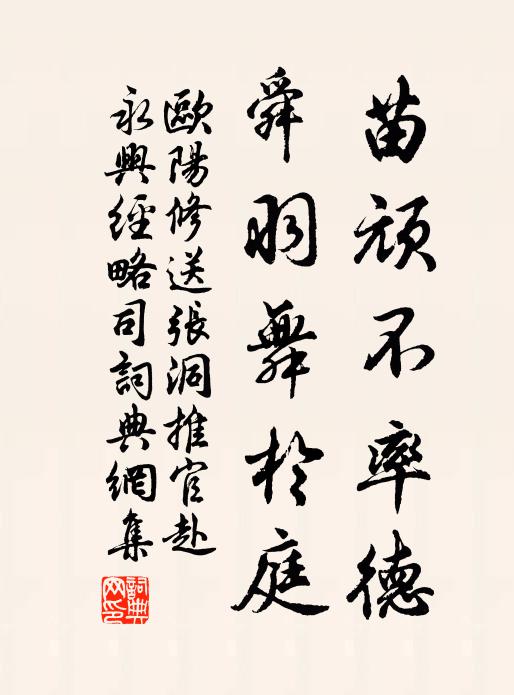 苗頑不率德
舜羽舞於庭
歐陽修送張洞推官赴
永興經略司詞典網集